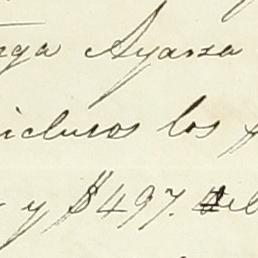 ega Ayarza
iclusos los
y $497. del